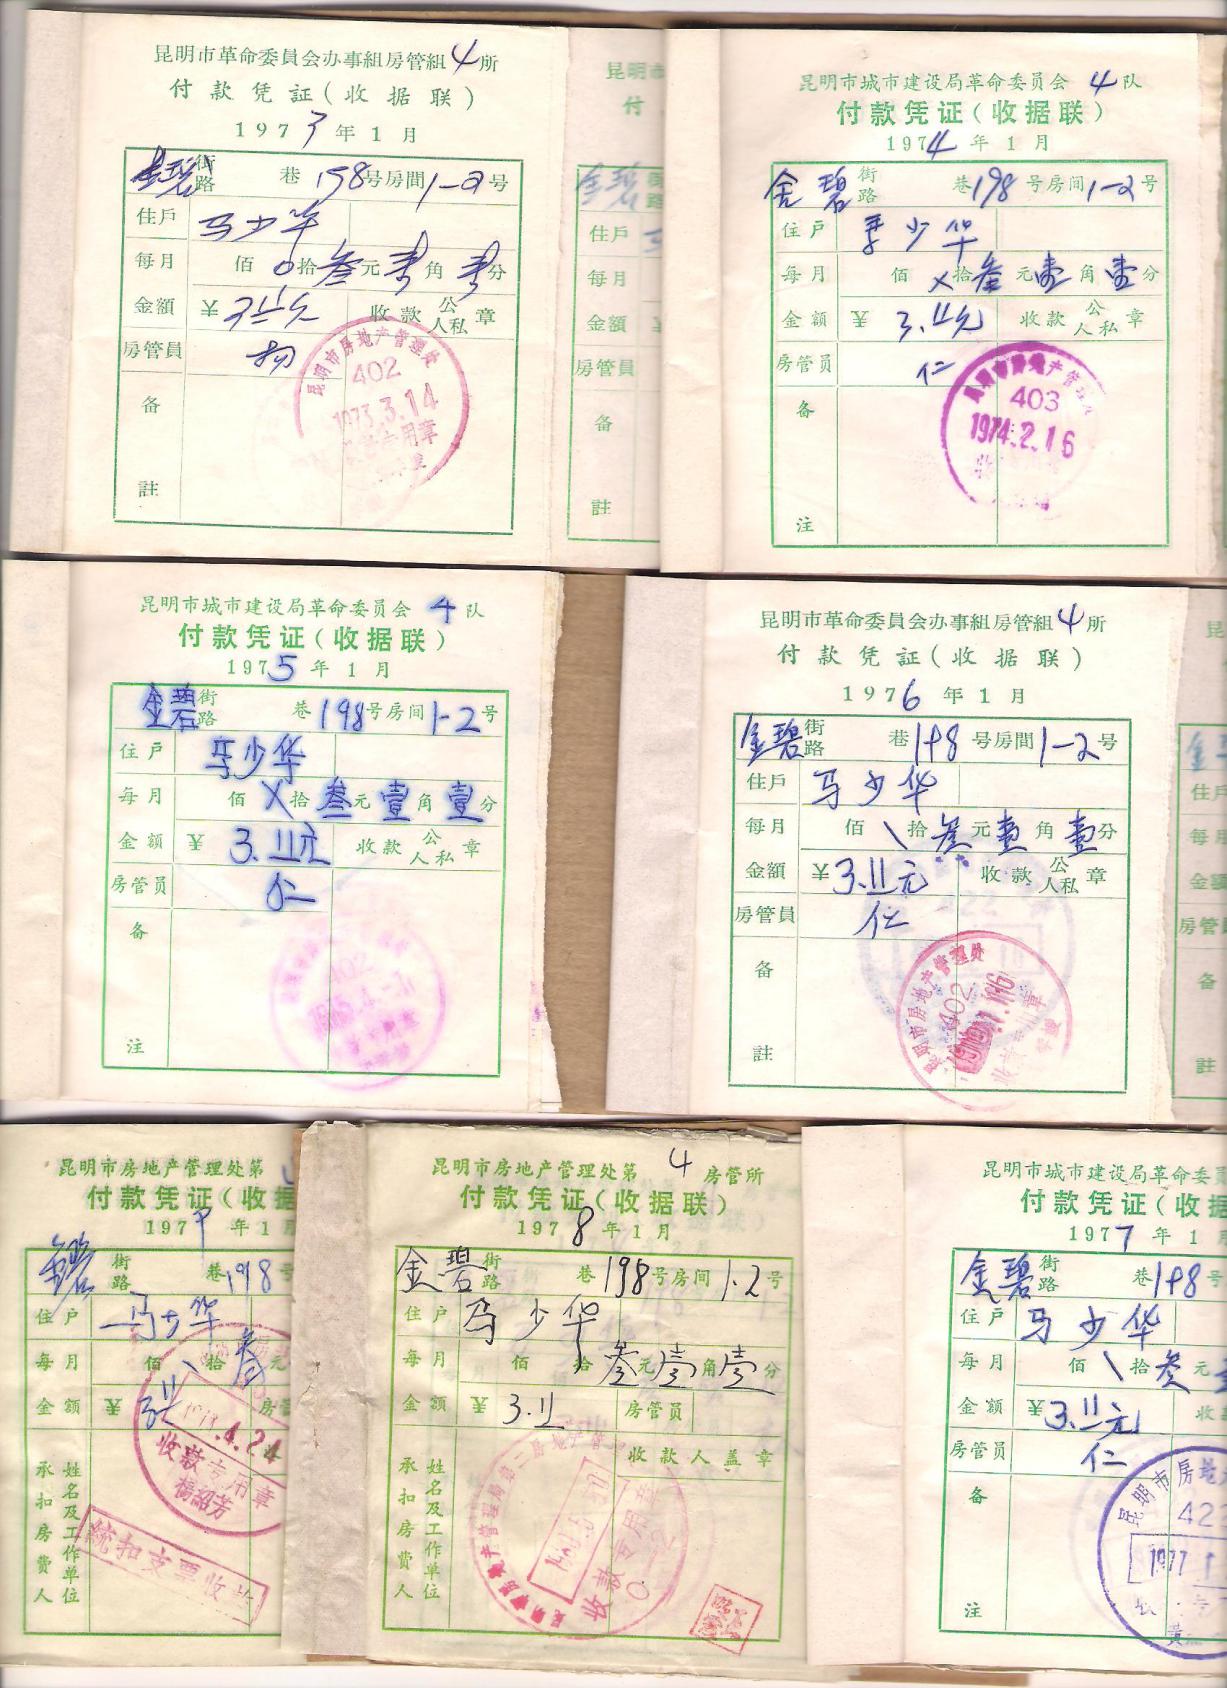 昆明市革命委員会办事組房管組4所
付款凭证(收据联)
1973年1月
金碧街路 巷198号房間1-2号
住戶 马少华
每月 佰0拾叁元壹角壹分
金額 ¥3.11元 收款公人私章
房管員
备
註
昆明市房地产管理处
402
1973.3.14
昆明市
付
金碧
住戶
每月
金額
房管員
备
註
昆明市城市建设局革命委员会 4队
付款凭证(收据联)
1974年1月
金碧街路 巷198号房间1-2号
住户 马少华
每月 佰X拾叁元壹角壹分
金额 ¥3.11元 收款公人私章
房管员 仁
备
注
昆明市房地产管理处
403
1974.2.16
昆明市城市建设局革命委员会 4队
付款凭证(收据联)
1975年1月
金碧街路 巷198号房间1-2号
住户 马少华
每月 佰X拾叁元壹角壹分
金额 ¥3.11元 收款公人私章
房管员 仁
备
注
402
昆明市革命委員会办事組房管組4所
付款凭証(收据联)
1976年1月
金碧街路 巷198号房間1-2号
住戶 马少华
每月 佰\拾叁元壹角壹分
金額 ¥3.11元 收款公人私章
房管員 仁
备
註
昆明市房地产管理处
402
住戶
每月
金額
房管員
备
註
昆明市房地产管理处第
付款凭证(收据
197 年1月
金碧街路 巷198号
住户 马少华
每月 佰\拾叁元
金额 ¥3.11 房管
承扣房费人 姓名及工作单位
4.24
收款专用章
楊紹芳
統扣支票收
昆明市房地产管理处第4房管所
付款凭证(收据联)
1978年1月
金碧街路 巷198号房间1-2号
住户 马少华
每月 佰 拾叁元壹角壹分
金额 ¥3.11 房管员
收款人盖章
承扣房费人 姓名及工作单位
收款专用章
昆明市城市建设局革命委员
付款凭证(收据
1977年1月
金碧街路 巷198号
住户 马少华
每月 佰\拾叁元
金额 ¥3.11元 收
房管员 仁
备
注
昆明市房地
422
1977.1